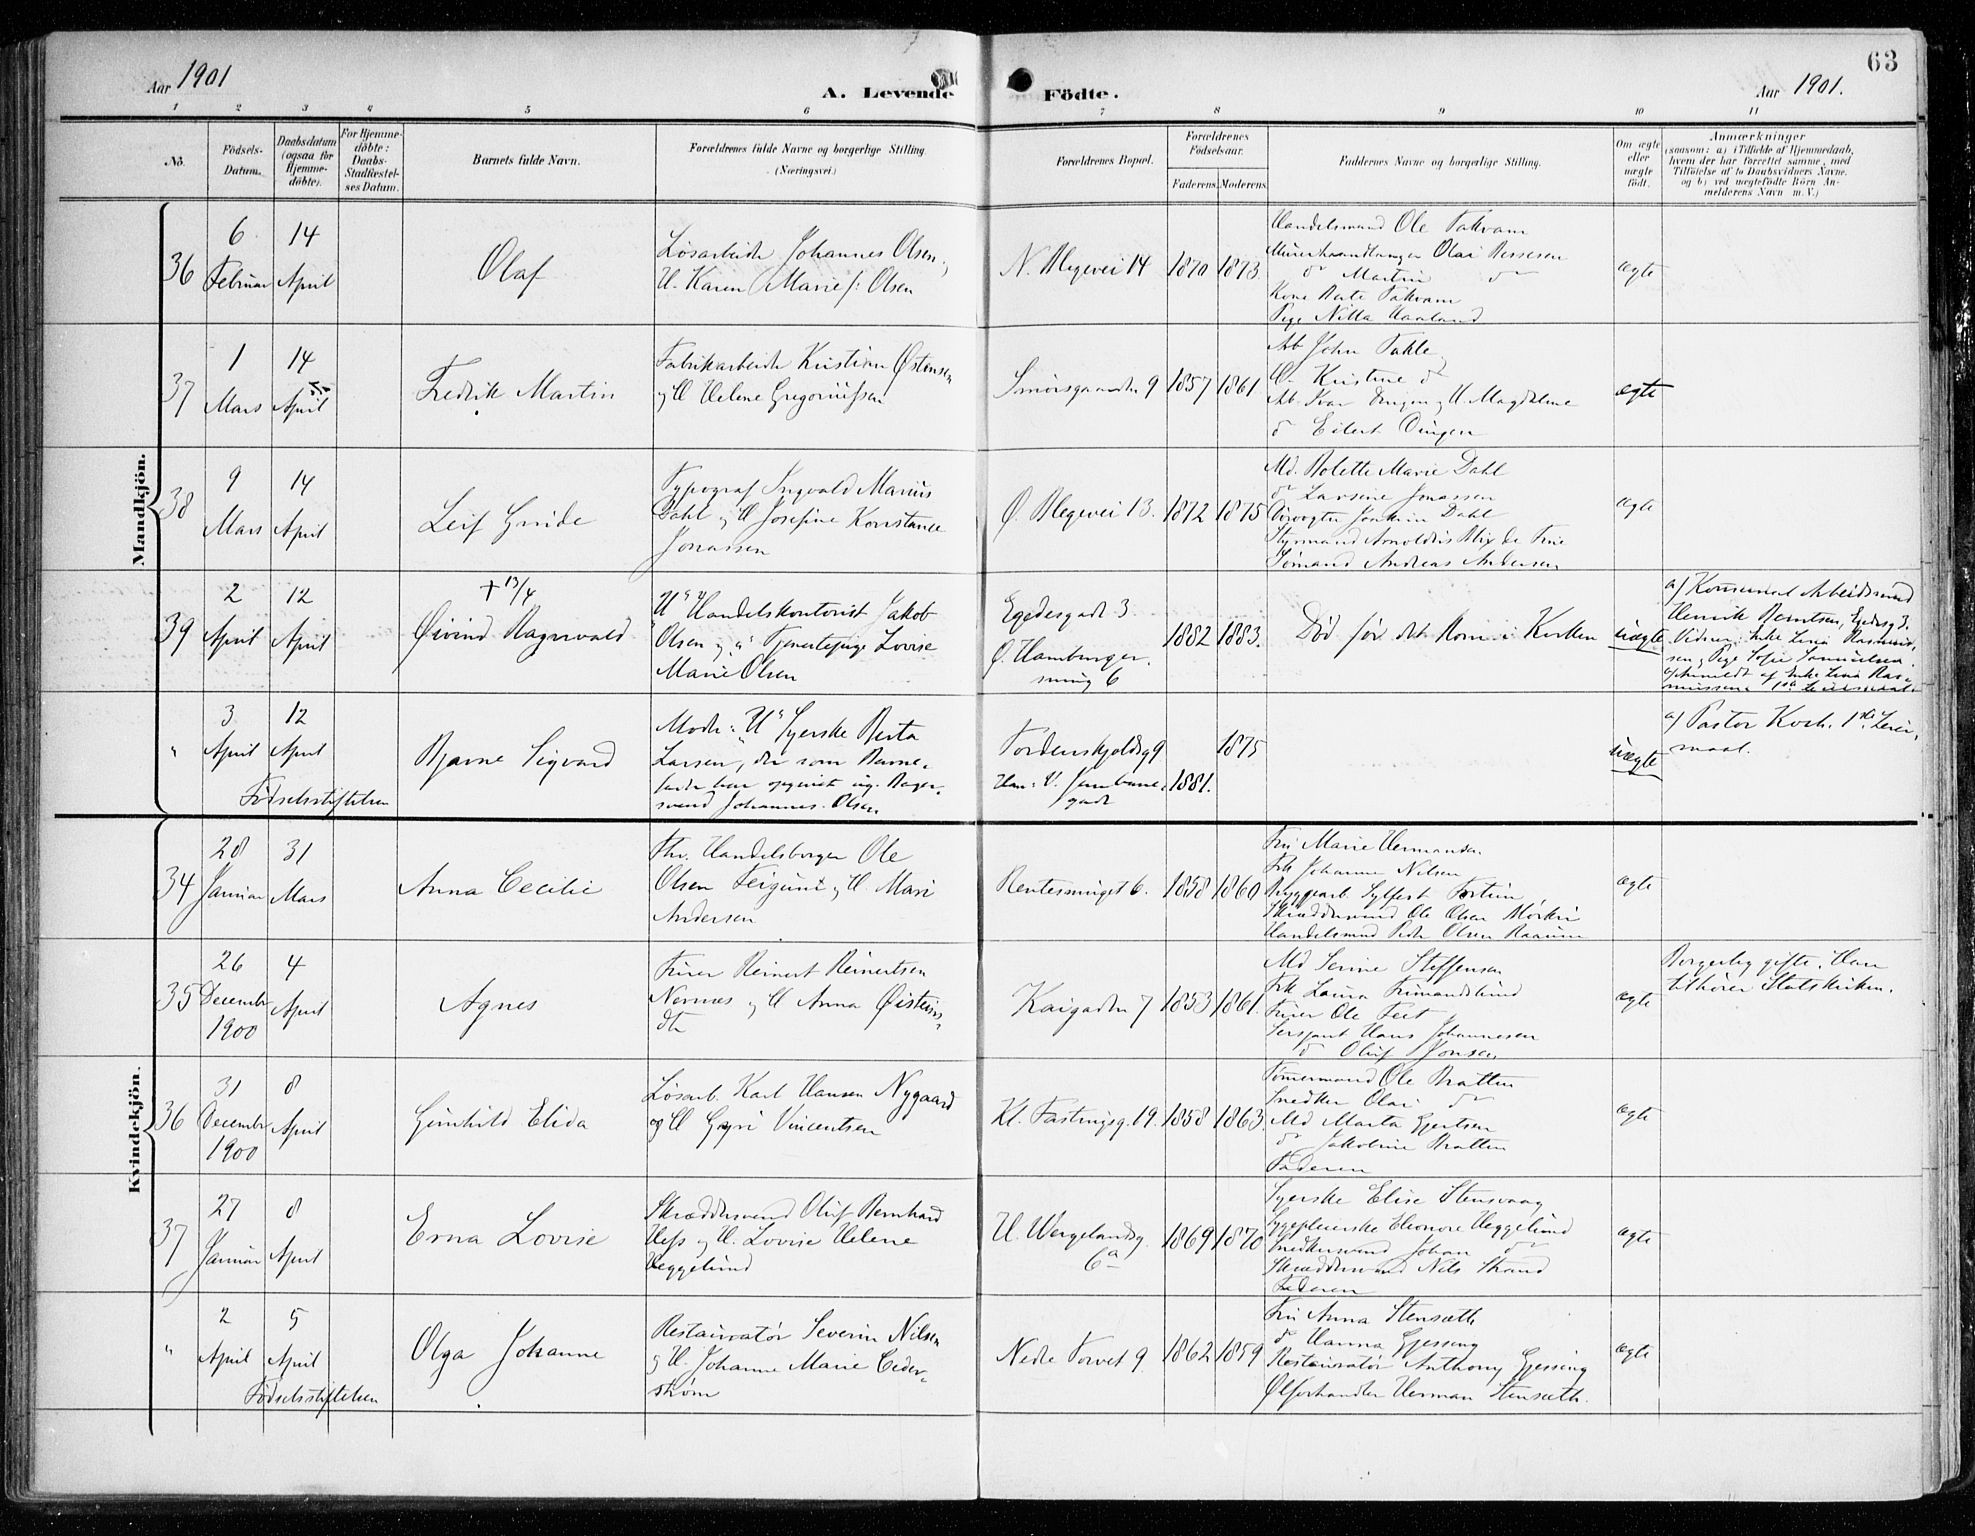 63
Aar 1901
A. Levende Födte.
Aar 1901.
1 2 3 4 5 6 7 8 9 10 11
No.
Födsels-Datum.
Daabsdatum (ogsaa for Hjemme-döbte).
For Hjemme-döbte: Daabs-Stadfæstel-ses Datum.
Barnets fulde Navn.
Forældrenes fulde Navne og borgerlige Stilling. (Næringsvei.)
Forældrenes Bopæl.
Forældrenes Födselsaar.
Faderens. Moderens.
Faddernes Navne og borgerlige Stilling.
Om ægte eller uægte födt.
Anmærkninger
(saasom: a) i Tilfælde af Hjemmedaab,
hvem der har forrettet samme, med
Tilföielse af to Daabsvidners Navne.
og b) ved uægtefödte Börn An-
melderens Navn m. V.)
Mandkjön.
36
6 Februar
14 April
Olaf
Løsarbeider Johannes Olsen,
H. Karen Marie f: Olsen
N. Blegevei 14
1870 1873
Handelsmand Ole Takvam
Olai
Martin do
Kone Berte Takvam
Pige Nilla Haaland
ægte
37
1 Mars
14 April
Fredrik Martin
Fabrikarbeider Kristian Østensen
og H Helene Gregoriussen
Smørsgaarden 9
1857 1861
Arb John Takle
H. Kristine do
Arb. Ivar og H Magdalene
do Eilert
ægte
38
9 Mars
14 April
Leif Gunde
Typograf Ingvald Marius
Dahl og H Josefine Konstance
Jonassen
Ø. Blegevei 13.
1872 1875
Md. Bolette Marie Dahl
do Larsine Jonassen
Joakim Dahl
Styrmand Arnoldus Blix de Fine
Sømand Andreas Andersen
ægte
39
2 April
12 April
+ 13/4
Øivind Ragnvald
U" Handelskontorist Jakob
Olsen og "" Tjenestepige Lovise
Marie Olsen
Egedesgade 3.
Ø. Hamburger-
smug 6
1882 1883.
Død før det kom i Kirken
uægte
a) Konfirmeret Arbeidsmand
Henrik Berntsen, Egedesg 3.
Vidner: Enke Lina Rasmus-
sen, Pige Sofie Samuelsen.
anmeldt af Enke Lina Ras-
mussen. 1ste Leiermaal.
"
3 April
12 April
Födselsstiftelsen
Bjarne Sigvard
Moder: U" Syerske Berta
Larsen, der som Barne-
fader har opgivet ug. Bager-
svend Johannes Olsen
Tordenskjoldsg 9
Han: V. Jernbane-
gade
1881. 1875
uægte
a) Pastor Koch. 1ste Leier-
maal.
Kvindekjön.
34
28 Januar
31 Mars
Anna Cecilie
Fhv. Handelsborger Ole
Olsen Feigum og H. Mari
Andersen
Rentesmuget 6.
1858 1860
Fru Marie Hermansen
Frk Johanne Nilsen
Bryggearb. Sylfest Fortun
Skræddersvend Ole Olsen Mørkri
Handelsmand Peder Olsen Raaum
ægte
35
26 December 1900
4 April
Agnes
Furer Reinert Reinertsen
Nernæs og H Anna Øisteins-
dtr
Kaigaden 7
1853 1861.
Md Serine Steffensen
Frk Laura
Furer Ole Feet
Sersjant Hans Johannesen
do Oluf Jonsen
ægte
Borgerlig gifte. Han
tilhører Statskirken.
36
31 December 1900
8 April
Gunhild Elida
Løsarb. Karl Hansen Nygaard
og H Guri Vincentsen
Kl. Fastingsg. 19.
1858 1863.
Tømermand Ole Bratten
Snedker Olai do
Md Marta Gjertsen
do Jakobine Bratten
Faderen
ægte
37
27 Januar
8 April
Erna Lovise
Skræddersvend Oluf Bernhard
Hess og H. Lovise Helene
Heggelund
H. Wergelandsg.
6a
1869 1870
Syerske Elise Stensvaag
Sygepleierske Eleonore Heggelund
Snedkersvend Johan do
Skræddersvend Nils Strand
Faderen
ægte
"
2 April
5 April
Födselsstiftelsen
Olga Johanne
Restauratør Severin Nilsen
og H. Johanne Marie Ceder-
strøm
Nedre Torvet 9.
1862 1859
Fru Anna Stensæth
do Hanna Gjessing
Restauratør Anthony Gjessing
Ølforhandler Herman Stensæth.
ægte